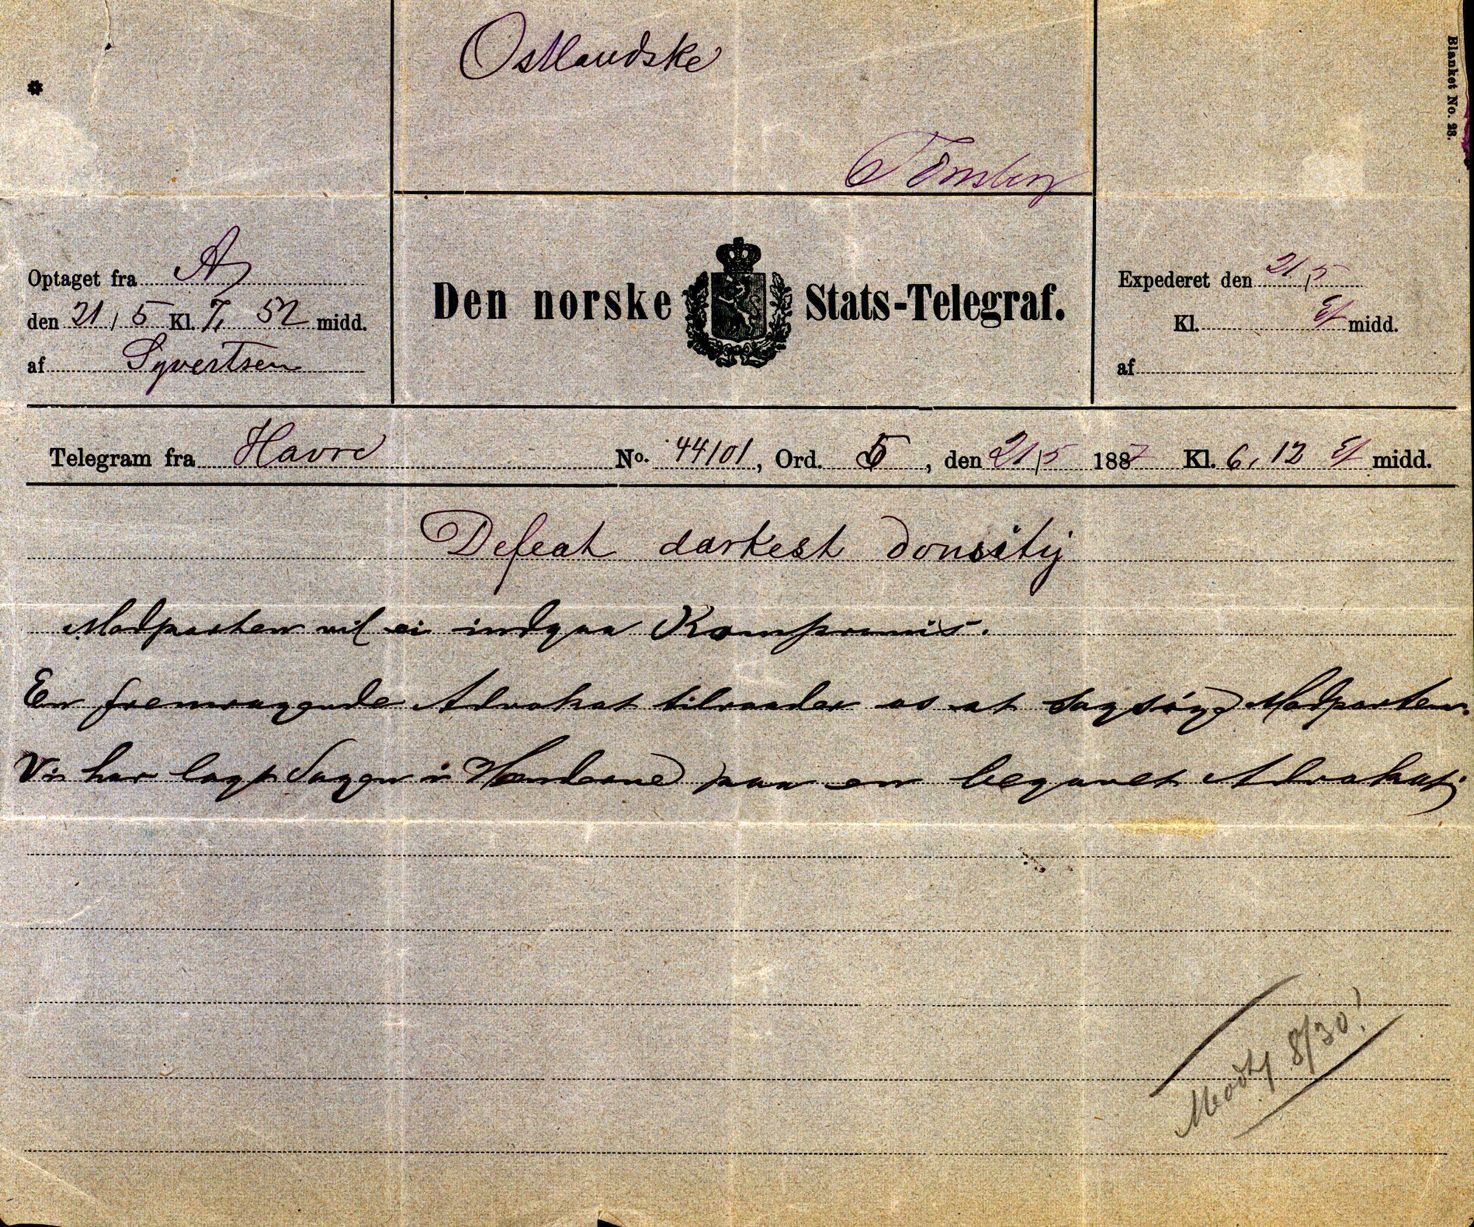 Blanket No. 28.
Ostlandske
Tönsberg
Optaget fra A
den 21/5 Kl. 7, 52 midd.
af Syvertsen
Den norske Stats-Telegraf.
Expederet den 21/5
Kl. Ef midd.
af
Telegram fra Havre No. 44101, Ord. 5, den 21/5 1887 Kl. 6, 12 Ef midd.
Defeat darkest donsity
Modparten vil ei indgaa Kompromis.
En fremragende Advokat tilraader os at sagsöge Modparten.
Vi har lagt Sagen i Hænderne paa en begavet Advokat;
8/30!